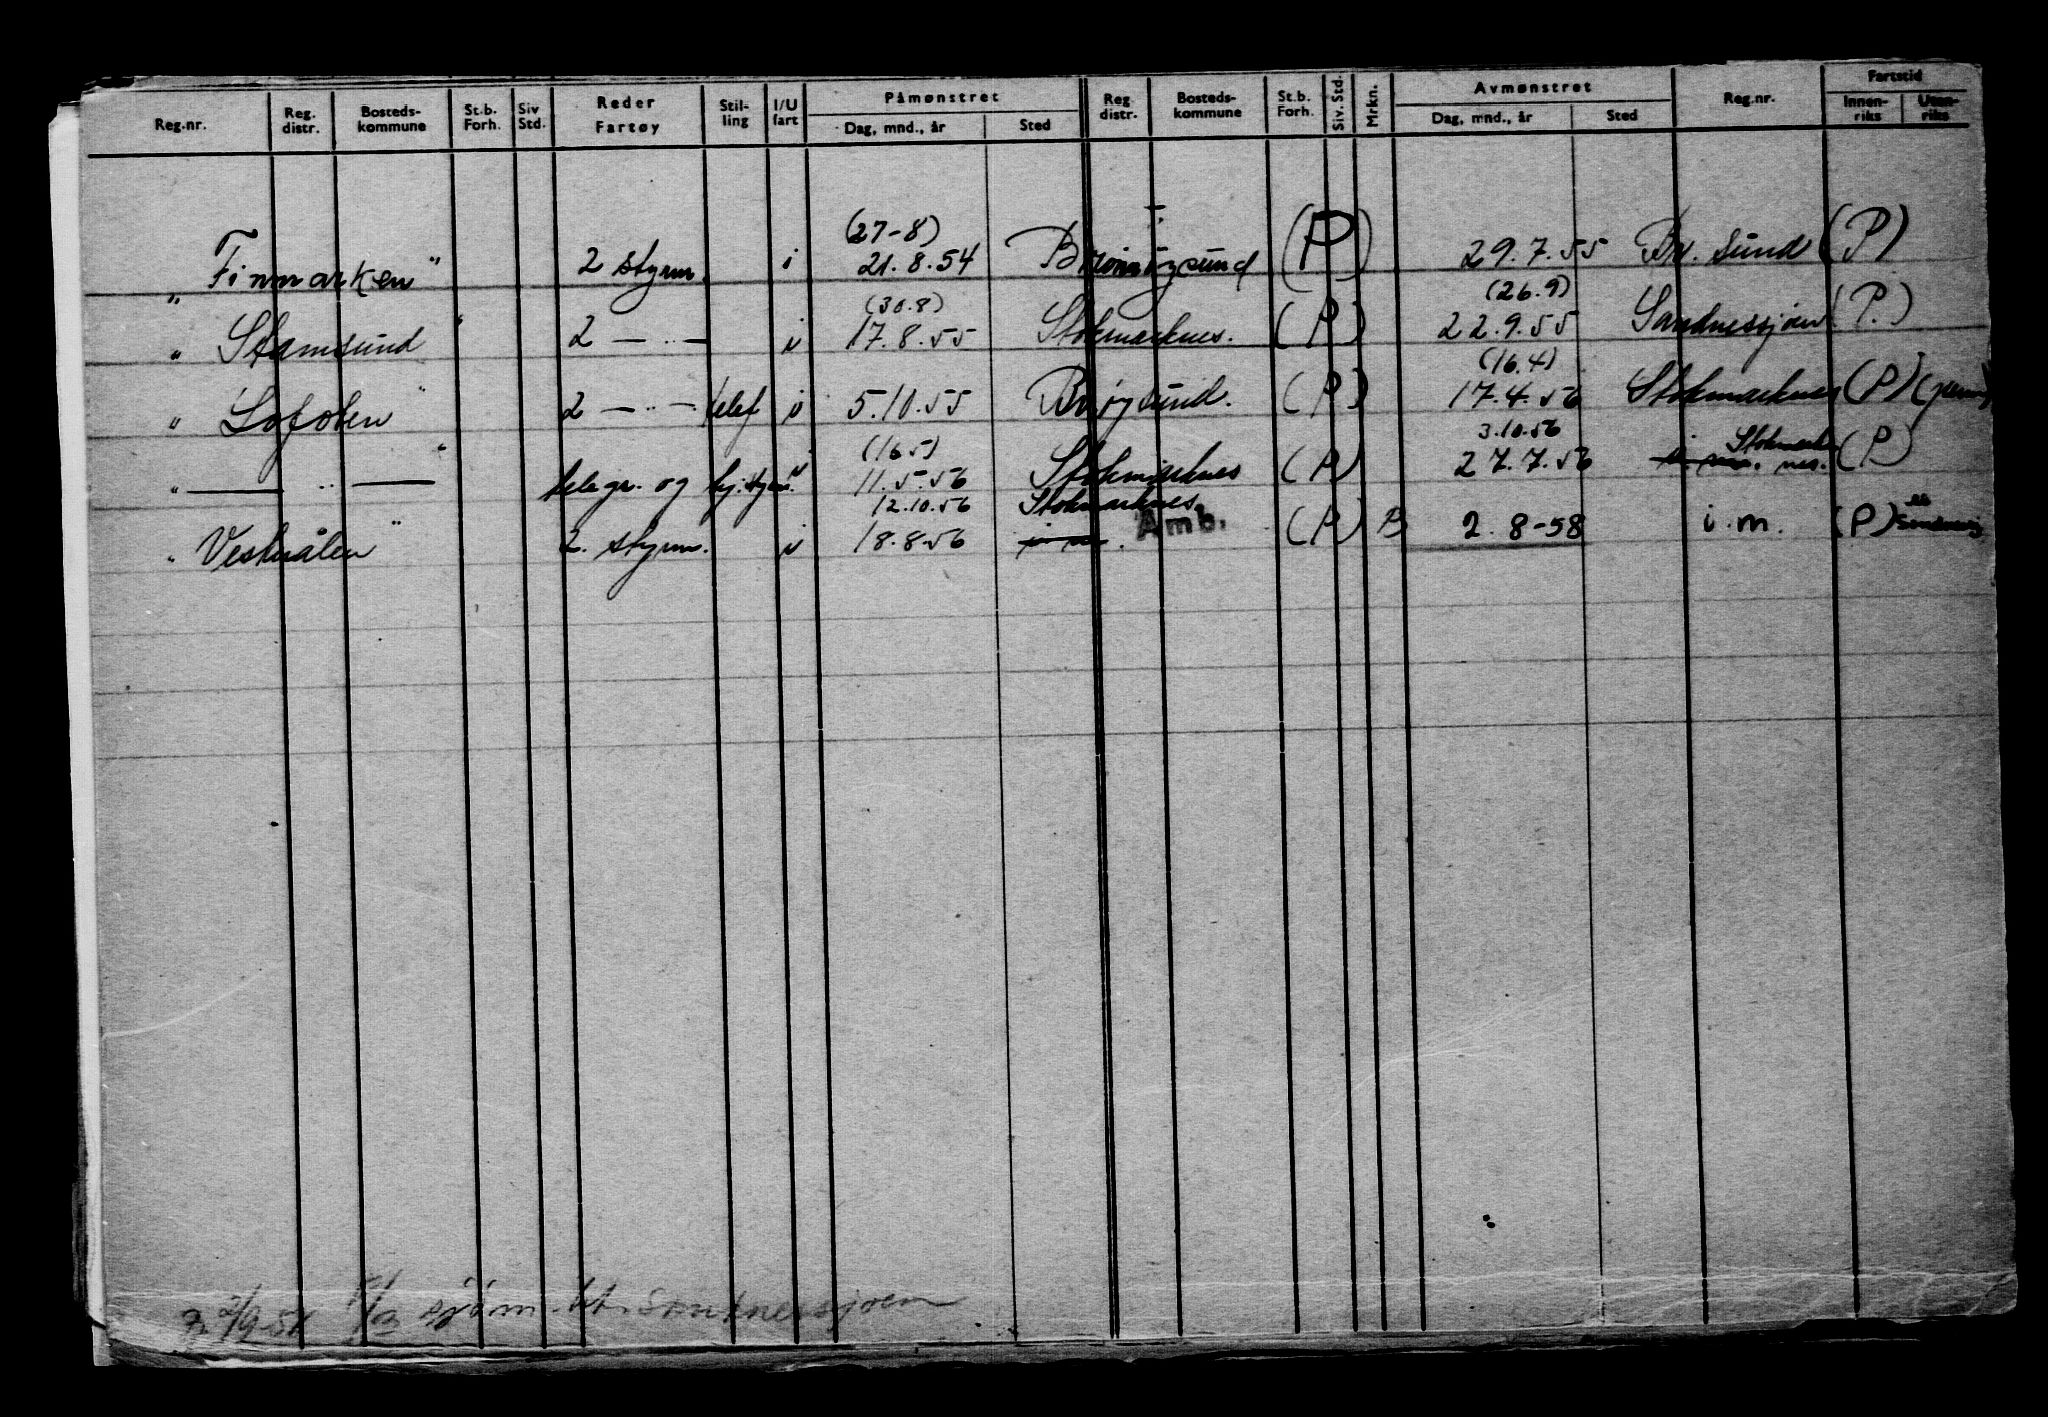 Reg.nr. Reg. distr. Bosteds-kommune St.b. Forh. Siv Std. Reder Fartøy Stil-ling I/U fart Påmønstret Dag, mnd., år Sted Reg. distr. Bosteds-kommune St.b. Forh. Siv. Std. Mrkn. Avmønstret Dag, mnd., år Sted Reg.nr. Fartstid Innen-riks Uten-riks
(27-8)
„ Finmarken" 2 styrm. i 21.8.54 Brønnøysund (P) 29.7.55 Br. sund (P)
(30.8) (26.9)
„ Stamsund " 2 — .. — i 17.8.55 Stokmarknes. (P) 22.9.55 Sandnessjøen (P.)
(16.4)
„ Lofoten " 2 — .. — telef i 5.10.55 Brøysund. (P) 17.4.56 Stokmarknes (P)
(16.5) 3.10.56 Stokmark
„ —— .. —— " telegr. og hj.styrm. i 11.5.56 Stokmarknes (P) 27.7.56 i. m. nes. (P)
12.10.56 Stokmarknes.
„ Vesterålen " 2. styrm. i 18.8.56 i m. Amb. (P) B 2.8-58 i.m. (P) Sandnessj
2/9.54 sjøm. Sandnessjøen